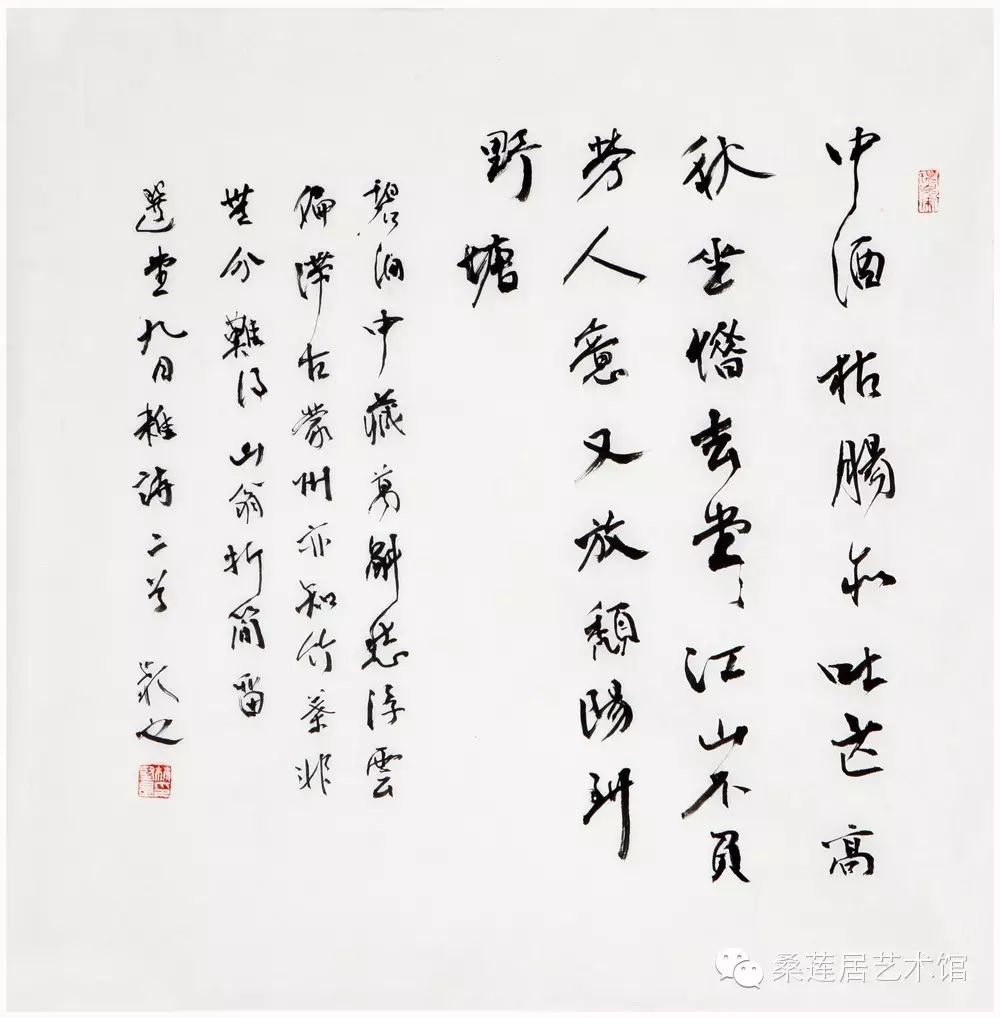 中酒枯腸亦吐芒高
秋坐惜去堂堂江山不負
勞人意又放頹陽到
野塘
碧洞中藏萬斛愁浮雲
偏滯古蒙州亦知竹葉非
無分難得山翁折簡留
選堂九月雜詩二首
桑莲居艺术馆